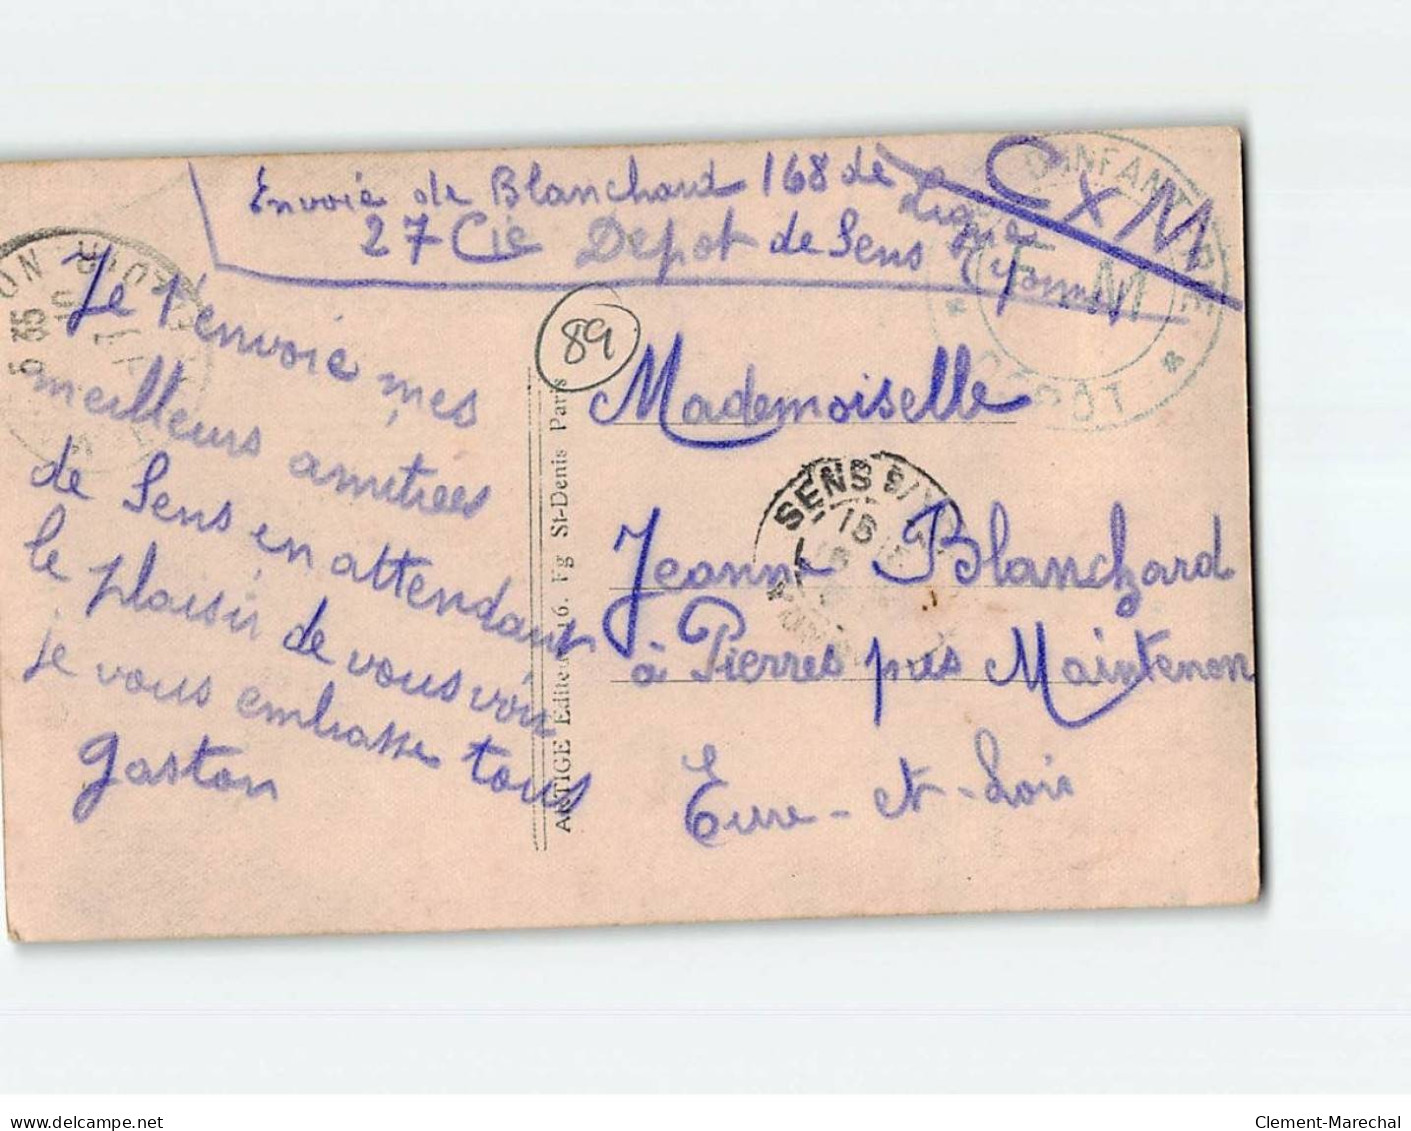 Envoié de Blanchard 168 de Ligne
27 Cie Depot de Sens (Yonne)
C x M
D'INFANTERIE
DEPOT
* F M *
89
Je t'envoie mes
meilleurs amitiées
de Sens en attendant
le plaisir de vous voir
je vous embrasse tous
Gaston
ARTIGE Editeur, 16. Fg St-Denis Paris
Mademoiselle
SENS
15
Jeanne Blanchard
à Pierres près Maintenon
Eure-et-Loir
delcampe.net
Clement-Marechal